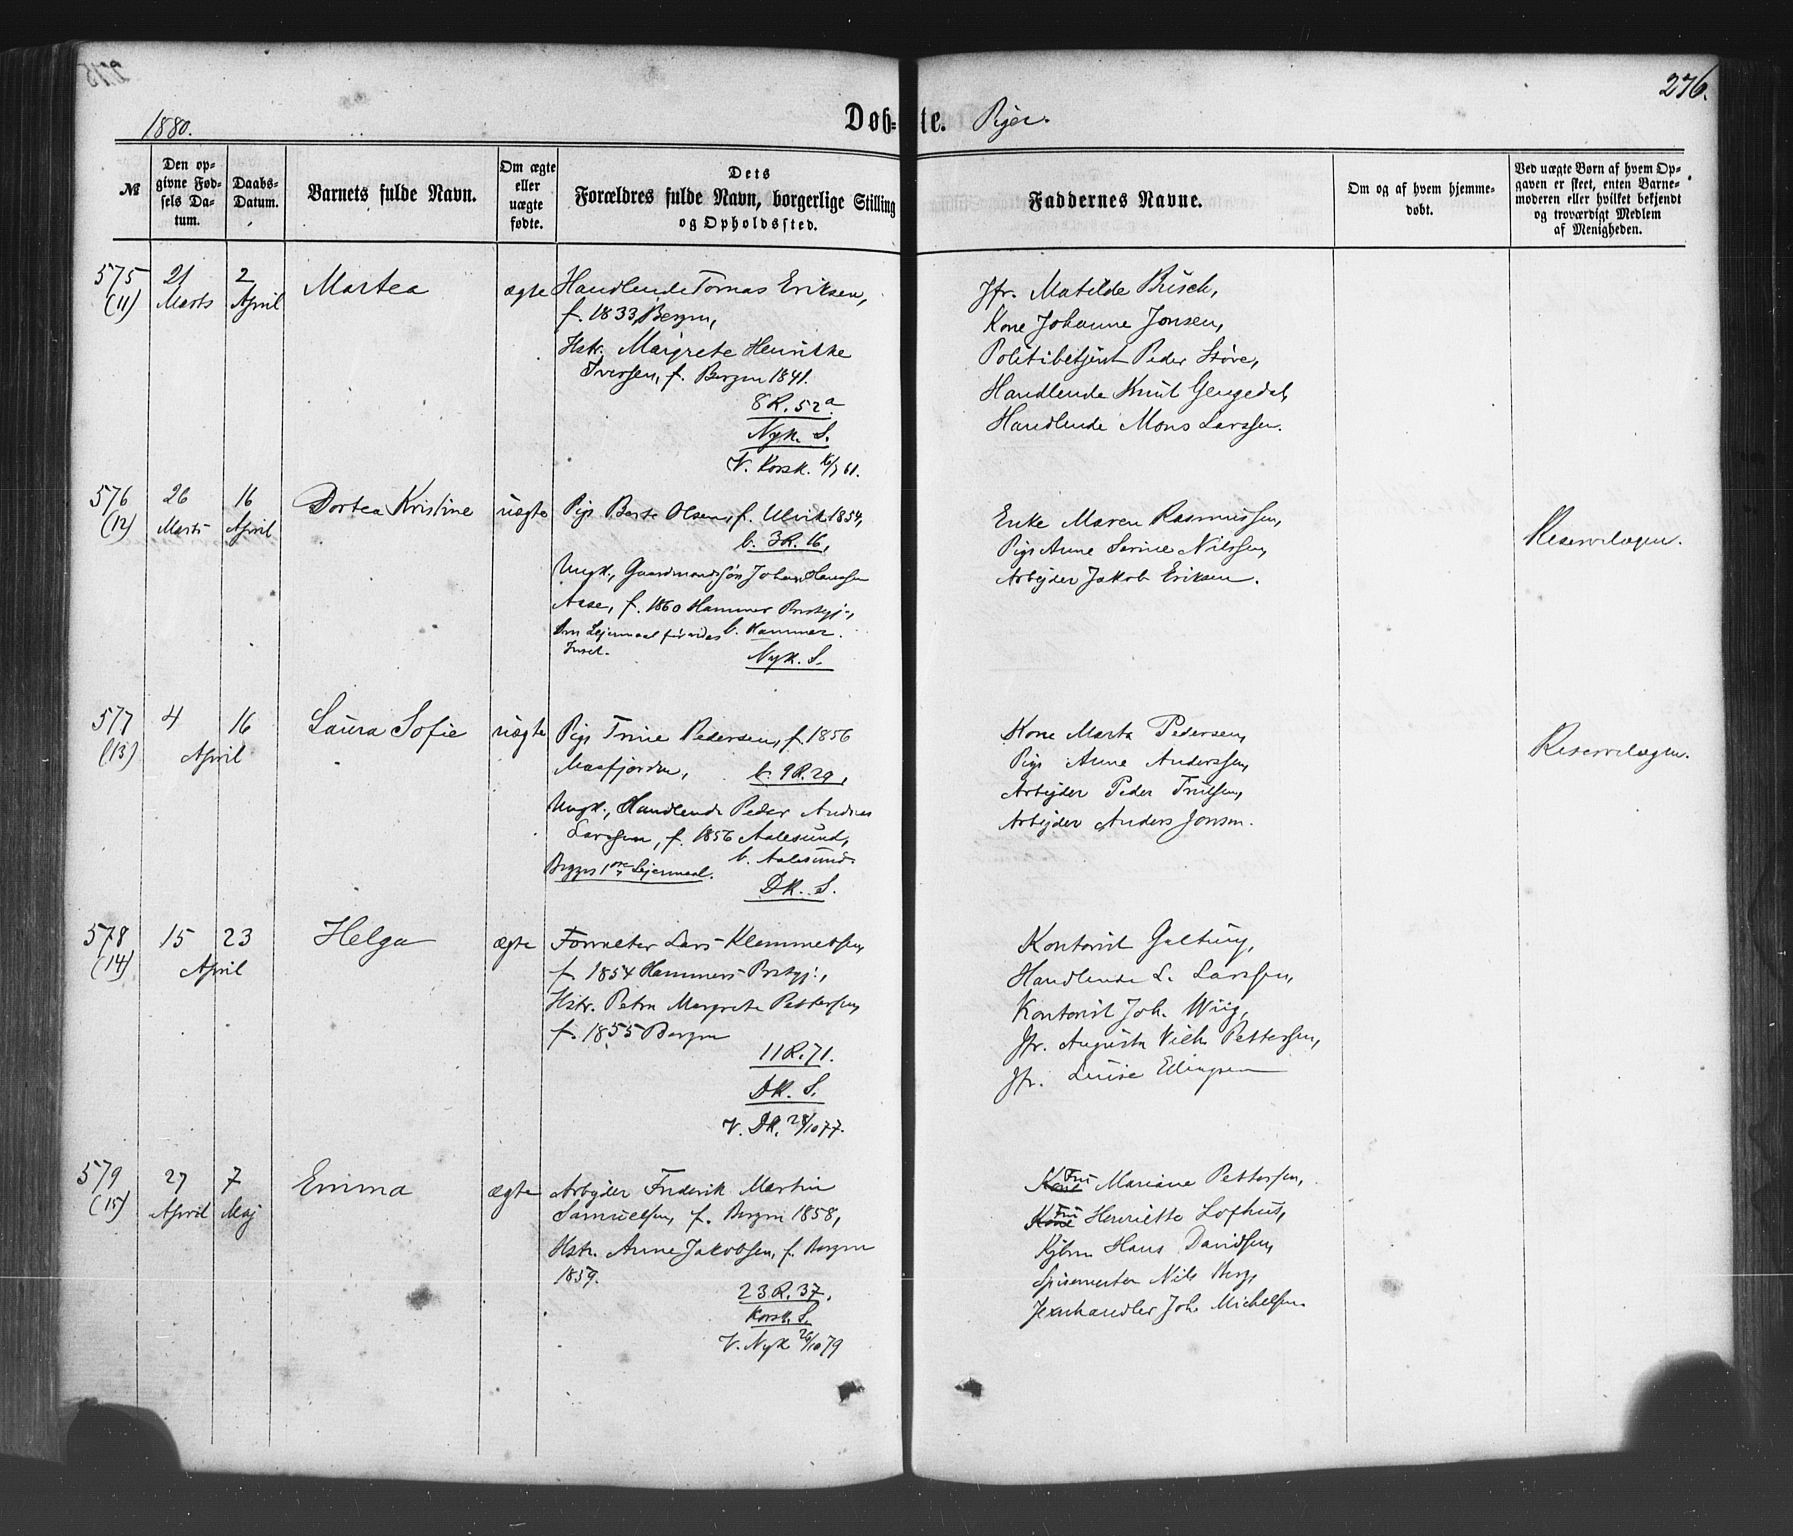 276.
1880.
Døb=te. Piger.
№
Den op=
givne Fød=
sels Da=
tum.
Daabs=
Datum.
Barnets fulde Navn.
Om ægte
eller
uægte
fødte.
Dets
Forældres fulde Navn, borgerlige Stilling
og Opholdssted.
Faddernes Navne.
Om og af hvem hjemme=
døbt.
Ved uægte Børn af hvem Op=
gaven er skeet, enten Barne=
moderen eller hvilket bekjendt
og troværdigt Medlem
af Menigheden.
575
(11)
21
Marts
2
April
Martea
ægte
Handlende Tomas Eriksen,
f. 1833 Bergen,
Hstr. Margrete Henrikke
Iversen, f. Bergen 1841.
8 R. 52a
Nyk. S.
V. Korsk. 61.
Jfr. Matilde Busch,
Kone Johanne Jonsen,
Politibetjent Peder Støve,
Handlende Knut Gengedal,
Handlende Mons Larssen.
576
(12)
26
Marts
16
April
Dortea Kristine
uægte
Pige Berte Olsen, f. Ulvik 1854,
b. 3 R. 16,
Ungk., Gaardmandssøn Johan Hansen
Aase, f. 1860 Hammer Prstgj.,
b. Hammer.
Nyk. S.
Enke Maren Rasmussen,
Pige Anne Serine Nilssen,
Arbejder Jakob Eriksen.
Reservelægen.
577
(13)
4
16
April
Laura Sofie
uægte
Pige Trine Pedersen, f. 1856
Masfjorden, b. 9 R. 29,
Ungk., Handlende Peder Andreas
Larssen, f. 1856 Aalesund,
b. Aalesund.
Begges 1ste Lejermaal.
DK. S.
Kone Marta Pedersen,
Pige Anne Anderssen,
Arbejder Peder Trulsen,
Arbejder Anders Jonsen.
Reservelægen.
578
(14)
15
23
April
Helga
ægte
Forvalter Lars Klemmetsen,
f. 1854 Hammers Prstgj.,
Hstr. Petra Margrete Pettersen,
f. 1855 Bergen
11 R. 71.
DK. S.
V. DK. 28/10 77.
Kontorist Galtung,
Handlende L. Larssen,
Kontorist Joh. Wiig,
Jfr. Augusta Vilh. Pettersen,
Jfr. Luise Ellingsen
579
(15)
27
April
7
Maj
Emma
ægte
Arbejder Frederik Martin
Samuelsen, f. Bergen 1858,
Hstr. Anne Jakobsen, f. Bergen
1859.
23 R. 37.
Korsk. S.
V. Nyk 26/10 79
Kone Fru Mariane Pettersen,
Kone Fru Henriette Lofthus,
Kjøbm Hans Davidsen,
Spisevertен Nils Berg,
Jernhandler Joh. Michelsen.